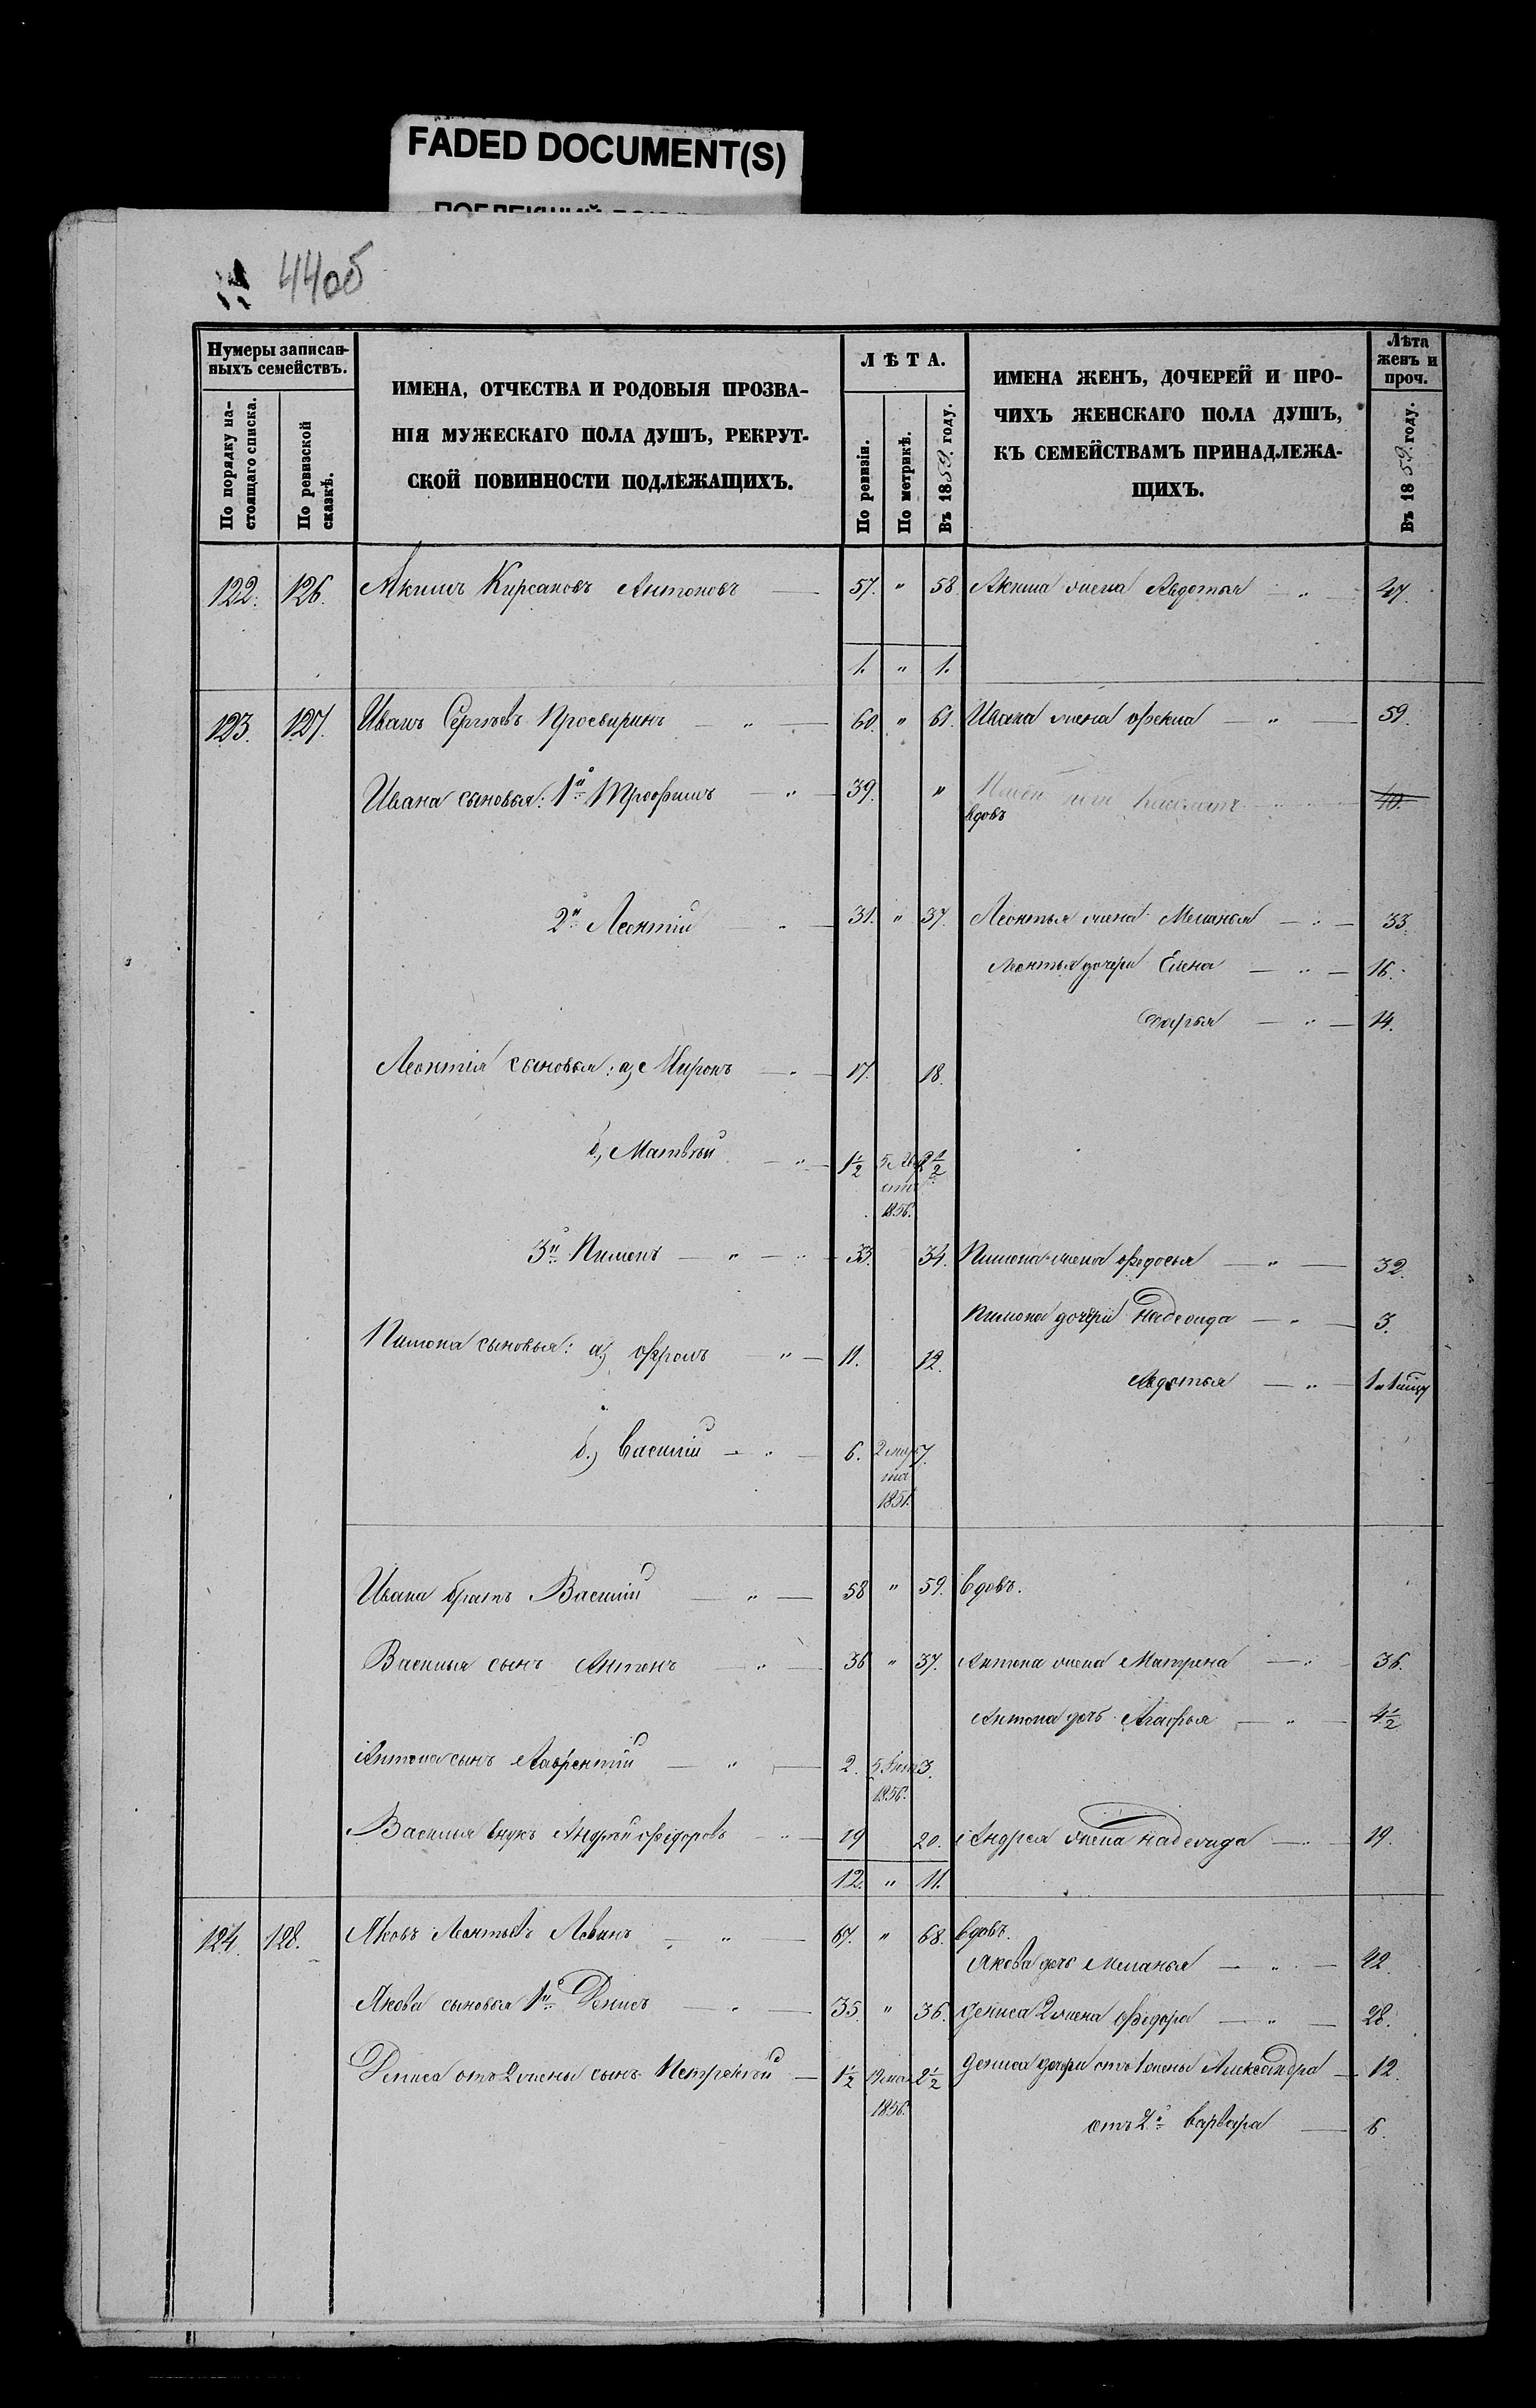 FADED DOCUMENT(S)
44 об
Нумеры записан-
ныхъ семействъ.
По порядку на-
стоящаго списка.
По ревизской
сказкѣ.
ИМЕНА, ОТЧЕСТВА И РОДОВЫЯ ПРОЗВА-
НІЯ МУЖЕСКАГО ПОЛА ДУШЪ, РЕКРУТ-
СКОЙ ПОВИННОСТИ ПОДЛЕЖАЩИХЪ.
ЛѢТА.
По ревизіи.
По метрикѣ.
Въ 1859. году.
ИМЕНА ЖЕНЪ, ДОЧЕРЕЙ И ПРО-
ЧИХЪ ЖЕНСКАГО ПОЛА ДУШЪ,
КЪ СЕМЕЙСТВАМЪ ПРИНАДЛЕЖА-
ЩИХЪ.
Лѣта
женъ и
проч.
Въ 1859. году.
122. 126. Акимъ Кирсановъ Антоновъ — 57. " 58. Акима жена Авдотья — " — 47.
1. " 1.
123. 127. Иванъ Сергѣевъ Просвиринъ — " — 60. " 61. Ивана жена — " — 59.
Ивана сыновья: 1й Трофимъ — " — 39. " 40.
вдовъ
2й Леонтій — " — 31. " 37. Леонтья жена Меланья — " — 33.
Леонтья дочери Елена — " — 16.
Дарья — " — 14.
Леонтія сыновья: а, Миронъ — " — 17. 18.
б, Матвѣй — " — 1½ 2½
1856.
3й Пименъ — " — 33. 34. Пимона жена Федосья — " — 32.
Пимона дочери Надежда — " — 3.
Пимона сыновья: а, — " — 11. 12.
Авдотья — " —
б, Василій — " — 6. 2 мар 7.
та
1851.
Ивана братъ Василій — " — 58 " 59. вдовъ.
Василья сынъ Антонъ — " — 36 " 37. Антона жена Матрена — " — 36.
Антона дочь Агафья — " — 4½
Антона сынъ Лаврентій — " — 2. 3.
1856.
Василья внукъ Андрей Федоровъ — " — 19 20. Андрея жена Надежда — " — 19.
12. " 11.
124. 128. Яковъ Леонтьевъ — " — 67. " 68. вдовъ.
Якова дочь Меланья — " — 42
Якова сыновья 1й Денисъ — " — 35. " 36. Дениса 2 жена Федора — " — 28.
Дениса отъ 2 жены сынъ — 1½ 2½ Дениса дочери отъ 1 жены Александра — 12.
1856.
отъ 2й Варвара — 6.